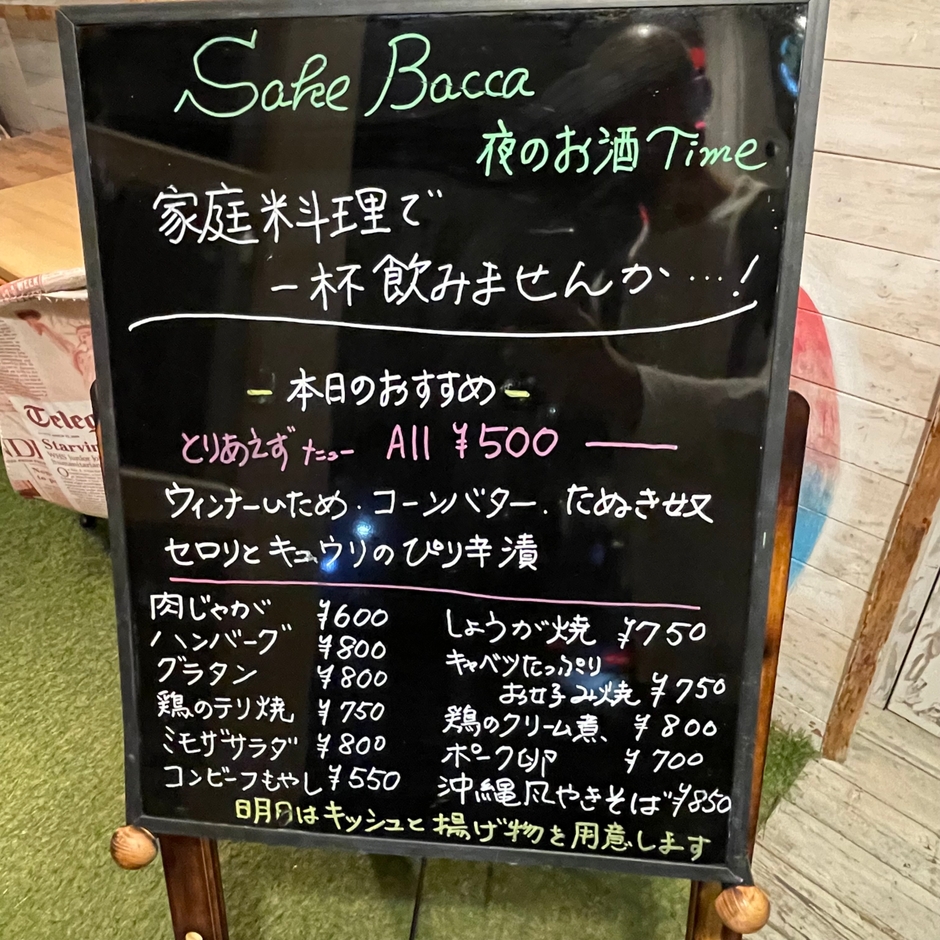 Sake Bacca
夜のお酒Time
家庭料理で
一杯飲みませんか…!
-本日のおすすめ-
とりあえずメニュー All ¥500
ウィンナーいため・コーンバター・たぬき奴
セロリとキュウリのぴり辛漬
肉じゃが ¥600
ハンバーグ ¥800
グラタン ¥800
鶏のテリ焼 ¥750
ミモザサラダ ¥800
コンビーフもやし ¥550
しょうが焼 ¥750
キャベツたっぷり
お好み焼 ¥750
鶏のクリーム煮 ¥800
ポーク卵 ¥700
沖縄風やきそば ¥850
明日はキッシュと揚げ物を用意します
Teleg
Starvin